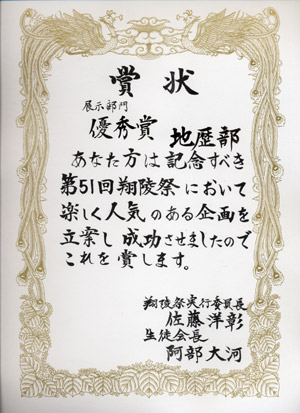 賞状
展示部門
優秀賞 地歴部
あなた方は記念すべき
第51回翔陵祭において
楽しく人気のある企画を
立案し成功させましたので
これを賞します。
翔陵祭実行委員長
佐藤洋彰
生徒会長
阿部大河